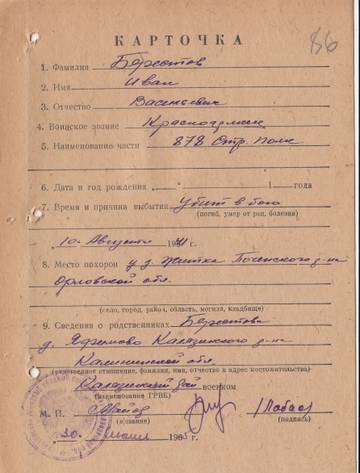 86
КАРТОЧКА
1. Фамилия Берестов
2. Имя Иван
3. Отчество Васильевич
4. Воинское звание Красноармеец
5. Наименование части 878 Стр. Полк
6. Дата и год рождения " " 1 года
7. Время и причина выбытия убит в бою
(погиб, умер от ран, болезни)
"10" Августа 1941 г.
8. Место похорон у д. Житня Почепского р-на
Орловской обл.
(село, город, район, область, могила, кладбище)
9. Сведения о родственниках Берестова
д. Калязинского р-на
Калининской обл.
(родственное отношение, фамилия, имя, отчество и адрес местожительства)
Калязинский рай военком
(наименование ГРВК)
М. П. Майор
(звание) (подпись)
"30" июля 1965 г.